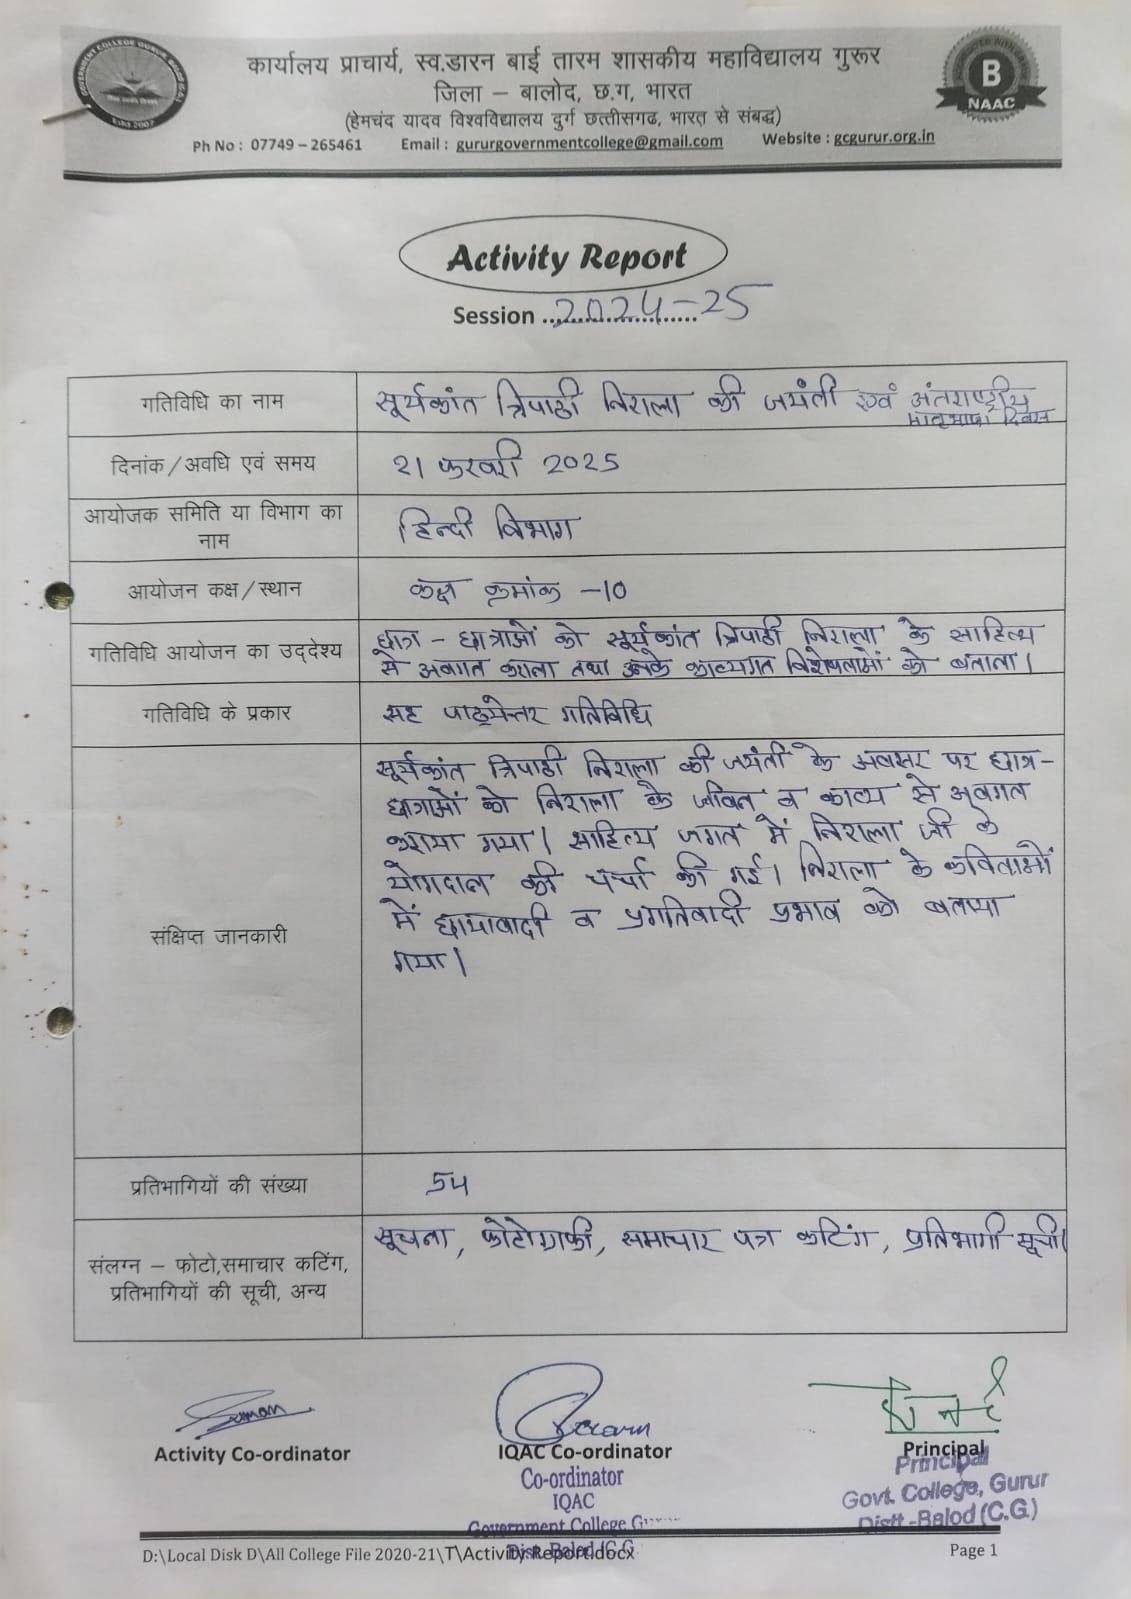 कार्यालय प्राचार्य, स्व.डारन बाई तारम शासकीय महाविद्यालय गुरूर
जिला – बालोद, छ.ग, भारत
(हेमचंद यादव विश्वविद्यालय दुर्ग छत्तीसगढ, भारत से संबद्ध)
Ph No : 07749 – 265461 Email : gururgovernmentcollege@gmail.com Website : gcgurur.org.in
B
NAAC
Activity Report
Session ....2024-25
गतिविधि का नाम
सूर्यकांत त्रिपाठी निराला की जयंती एवं अंतराष्ट्रीय
मातृभाषा दिवस
दिनांक/अवधि एवं समय
21 फरवरी 2025
आयोजक समिति या विभाग का
नाम
हिन्दी विभाग
आयोजन कक्ष/स्थान
कक्ष क्रमांक -10
गतिविधि आयोजन का उद्देश्य
छात्र - छात्राओं को सूर्यकांत त्रिपाठी निराला के साहित्य
से अवगत कराना तथा उनके काव्यगत विशेषताओं को बताना।
गतिविधि के प्रकार
सह पाठ्येत्तर गतिविधि
संक्षिप्त जानकारी
सूर्यकांत त्रिपाठी निराला की जयंती के अवसर पर छात्र-
छात्राओं को निराला के जीवन व काव्य से अवगत
कराया गया। साहित्य जगत में निराला जी के
योगदान की चर्चा की गई। निराला के कविताओं
में छायावादी व प्रगतिवादी प्रभाव को बताया
गया।
प्रतिभागियों की संख्या
54
संलग्न – फोटो,समाचार कटिंग,
प्रतिभागियों की सूची, अन्य
सूचना, फोटोग्राफी, समाचार पत्र कटिंग, प्रतिभागी सूची।
Activity Co-ordinator
IQAC Co-ordinator
Principal
Co-ordinator
IQAC
Government College
Principal
Govt. College, Gurur
Distt.-Balod (C.G.)
D:\Local Disk D\All College File 2020-21\T\Activity Report.docx
Page 1